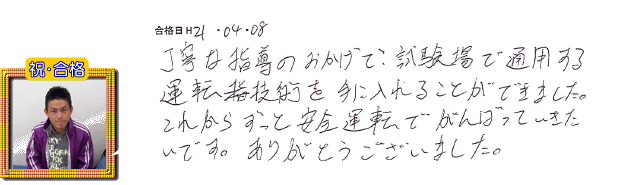 合格日 H21・04・08
祝・合格
丁寧な指導のおかげで、試験場で通用する
運転技術を手に入れることができました。
これからずっと安全運転でがんばっていきた
いです。ありがとうございました。